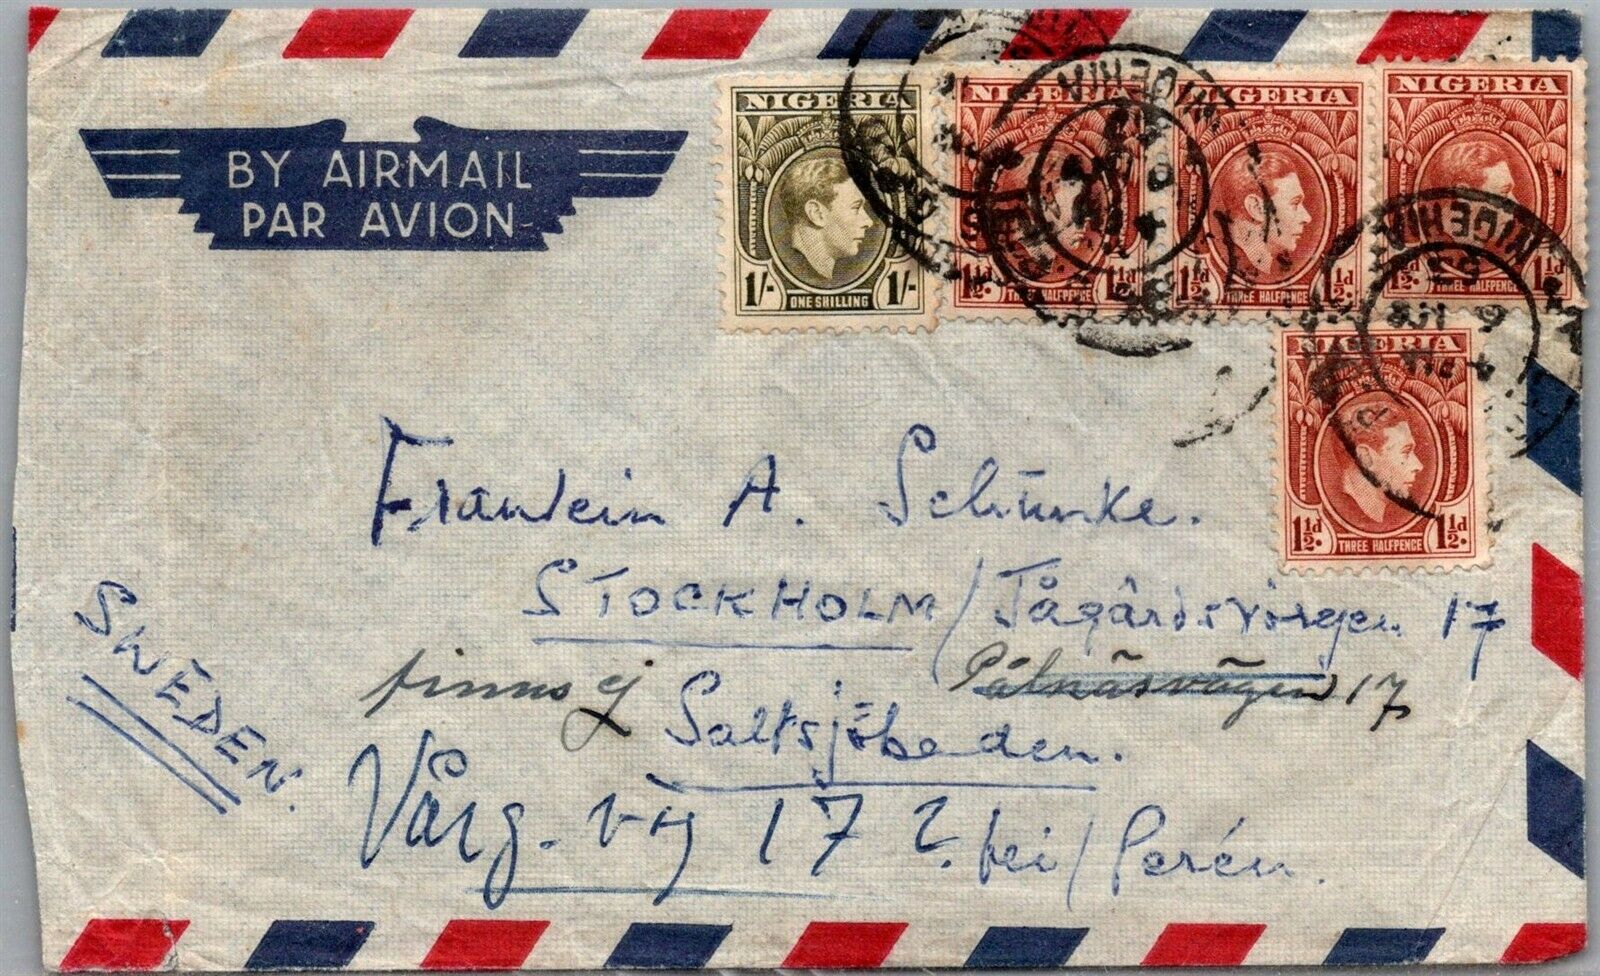 BY AIRMAIL
PAR AVION
NIGERIA
1/- ONE SHILLING 1/-
NIGERIA
1½d. THREE HALFPENCE 1½d.
NIGERIA
1½d. THREE HALFPENCE 1½d.
NIGERIA
1½d. THREE HALFPENCE 1½d.
NIGERIA
1½d. THREE HALFPENCE 1½d.
NIGERIA
NIGERIA
Fräulein A. Schünke.
STOCKHOLM / Tågårdsvägen 17
finns ej Pålnäsvägen 17
Saltsjöbaden.
Vårg. väg 17 ? bei / Perén.
SWEDEN.